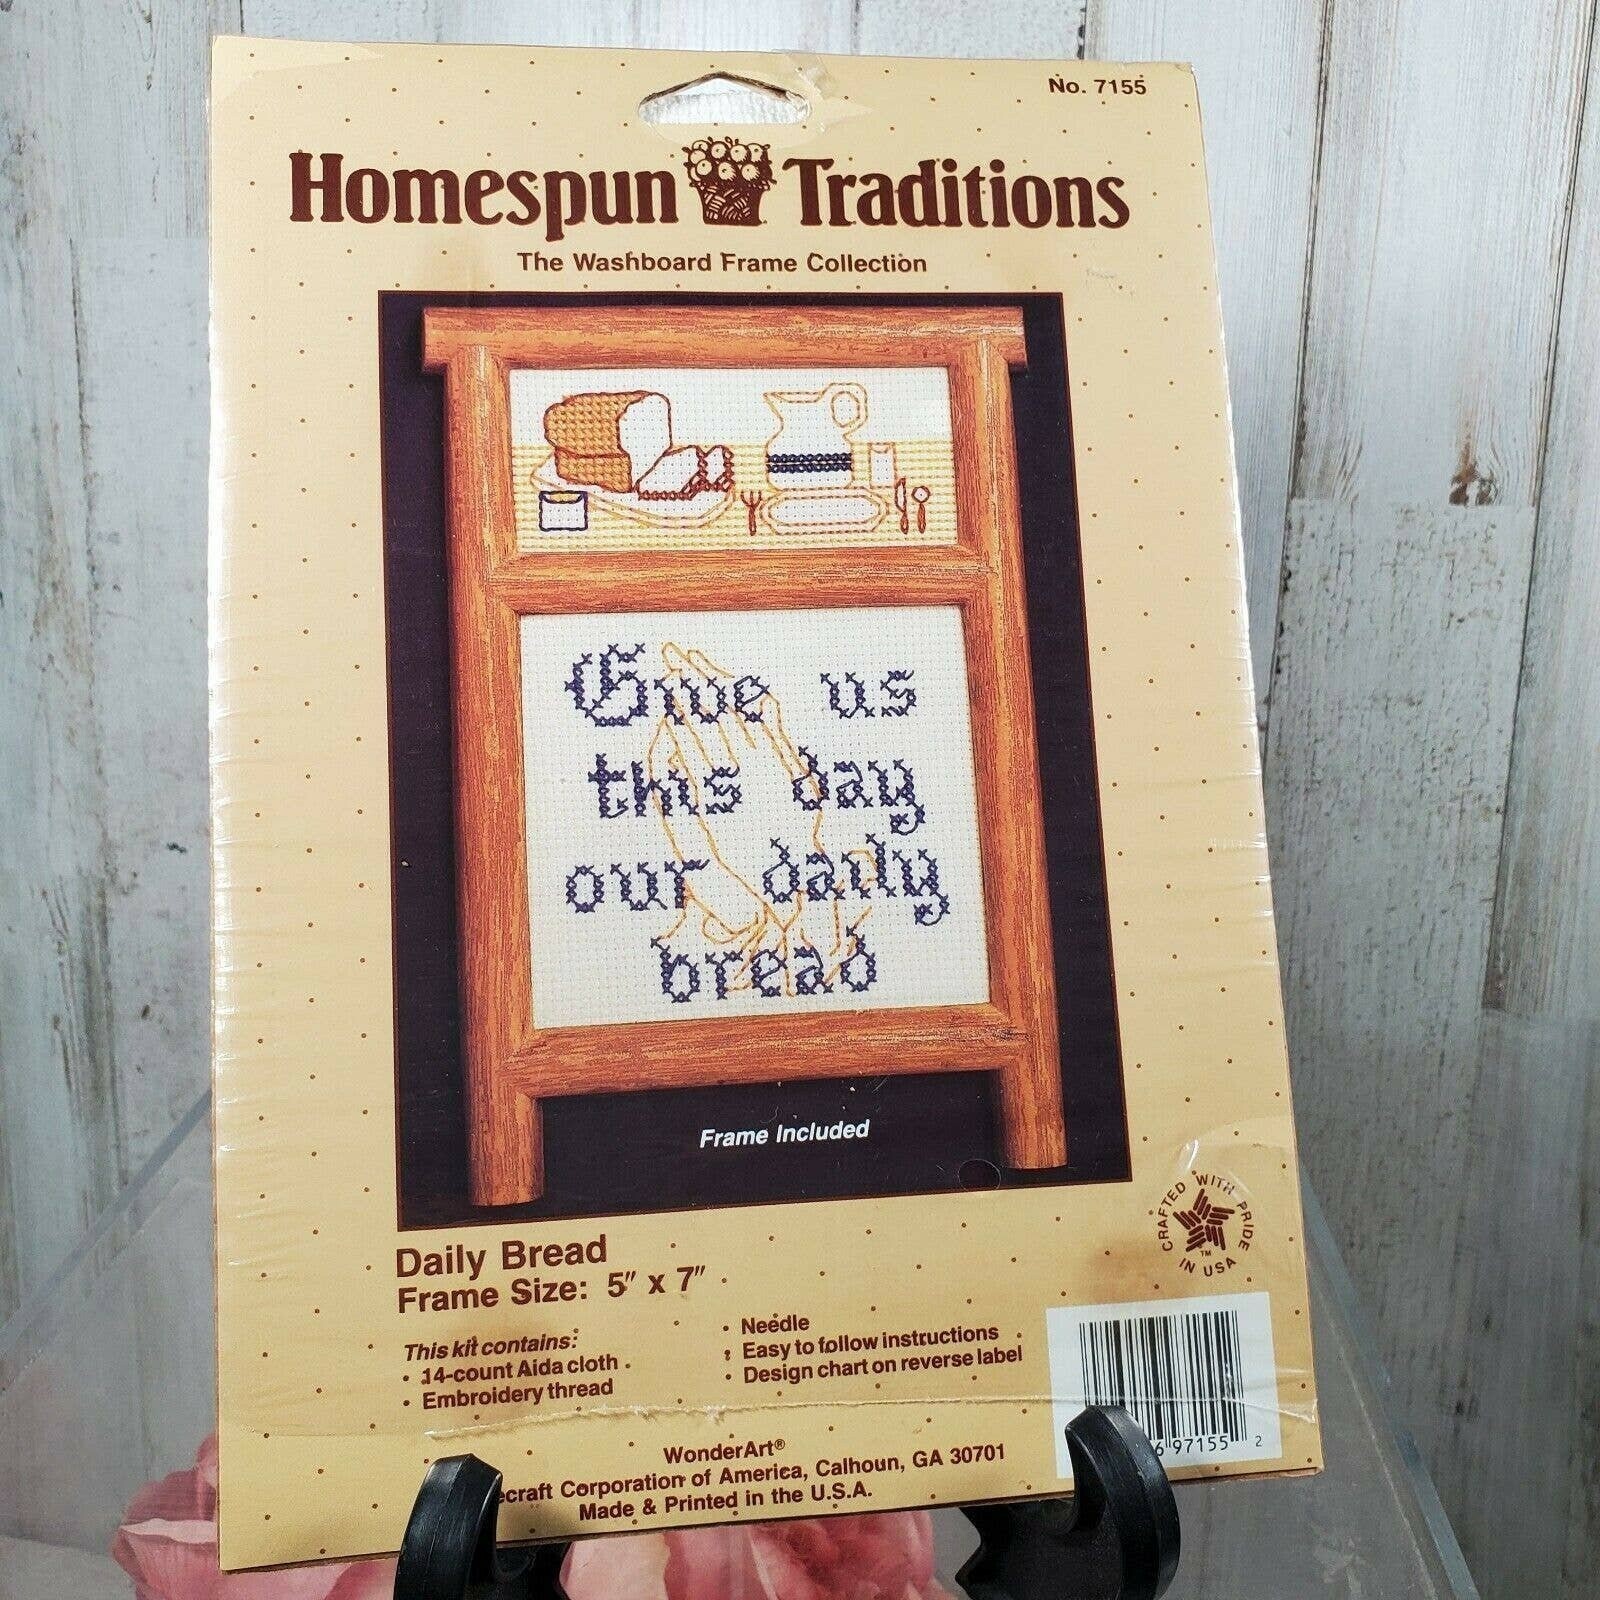 No. 7155
Homespun Traditions
The Washboard Frame Collection
Give us
this day
our daily
bread
Frame Included
CRAFTED WITH PRIDE IN USA
TM
Daily Bread
Frame Size: 5" x 7"
This kit contains:
• 14-count Aida cloth
• Embroidery thread
• Needle
• Easy to follow instructions
• Design chart on reverse label
6 97155 2
WonderArt®
Corporation of America, Calhoun, GA 30701
Made & Printed in the U.S.A.